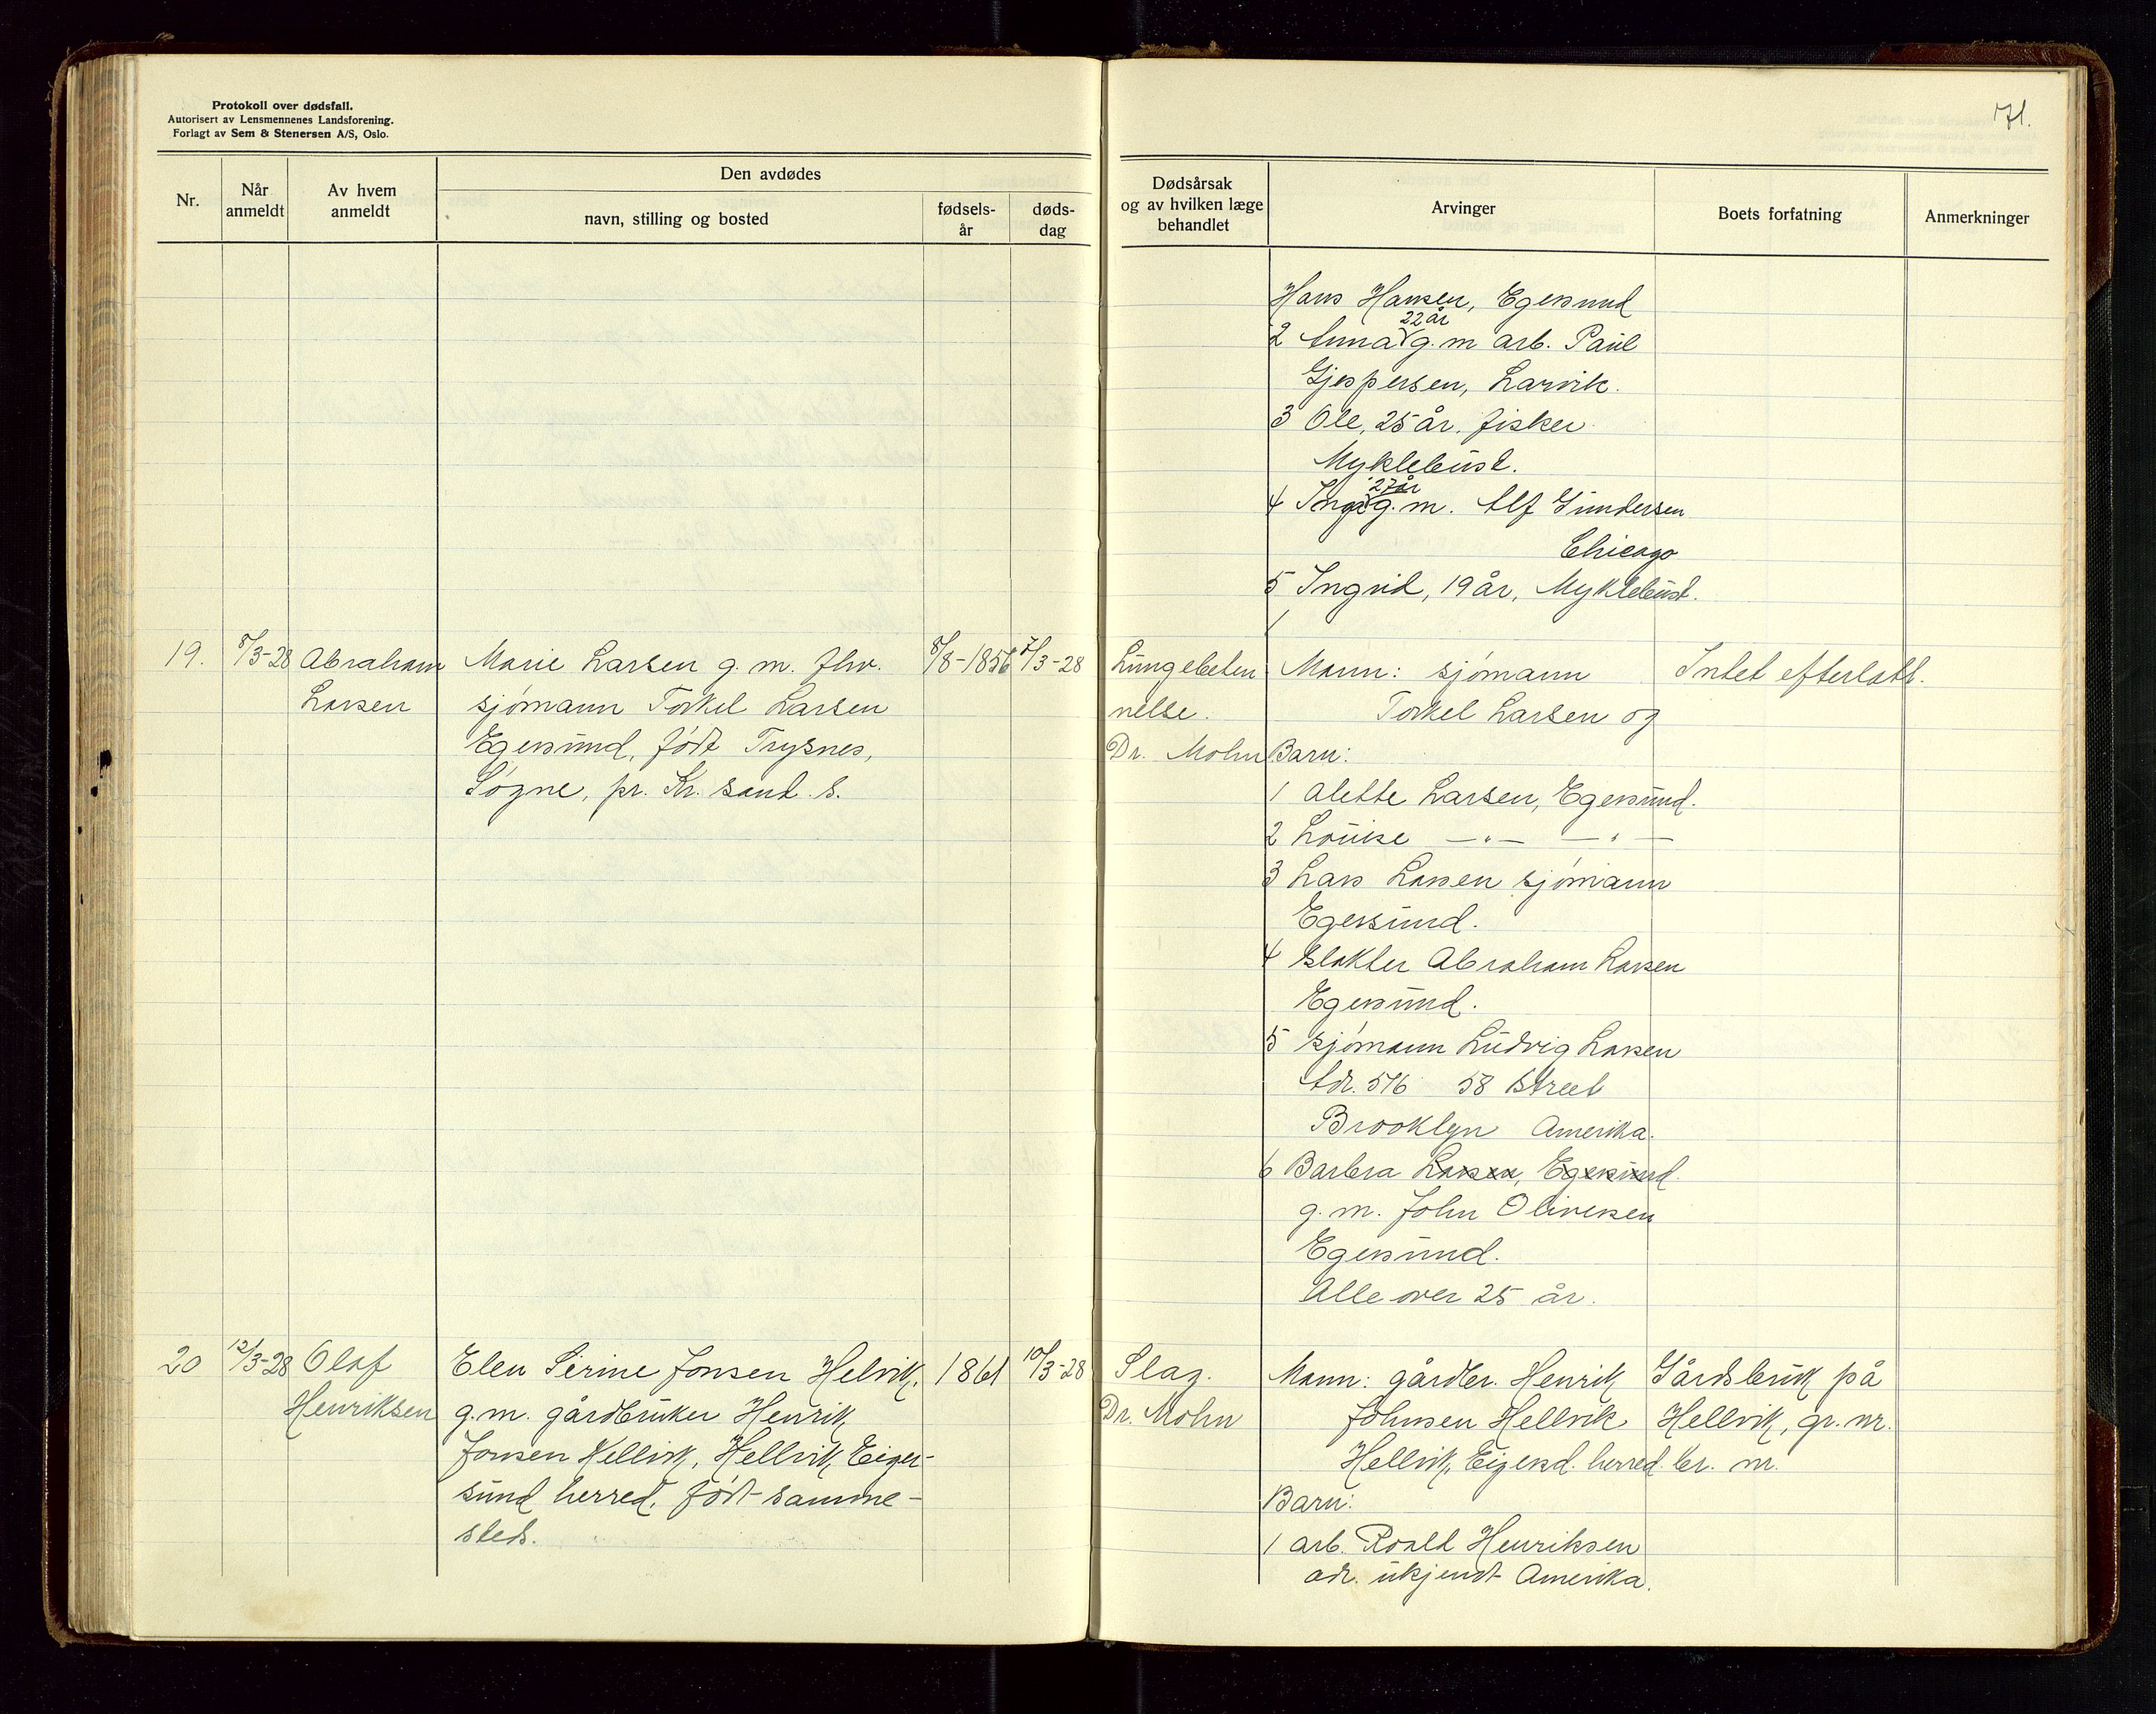 Protokoll over dødsfall.
Autorisert av Lensmennenes Landsforening.
Forlagt av Sem & Stenersen A/S, Oslo.
71.
Nr.
Når anmeldt
Av hvem anmeldt
Den avdødes
navn, stilling og bosted
fødsels-
år
døds-
dag
Dødsårsak
og av hvilken læge
behandlet
Arvinger
Boets forfatning
Anmerkninger
Hans Hansen, Egersund
22 år
2 Anna g. m arb. Paul
Gjespersen, Larvik.
3 Ole, 25 år, fisker
Myklebust.
27 år
4 Inga g. m. Alf Gundersen
Chicago
5 Ingrid, 19 år, Myklebust.
19. 8/3-28 Abraham
Larsen
Marie Larsen g. m. fhv.
sjømann Torkel Larsen
Egersund, født Trysnes,
Søgne, pr. Kr. sand. S.
8/8-1856 7/3-28
Lungebeten
nelse.
Dr. Mohn
Mann: sjømann
Torkel Larsen og
Barn:
1 Alette Larsen, Egersund.
2 Louise —"— —"—
3 Lars Larsen sjømann
Egersund.
4 slakter Abraham Larsen
Egersund.
5 sjømann Ludvig Larsen
Adr. 576 58 Street
Brooklyn Amerika.
6 Barbra Larsen, Egersund
g. m. John Oliversen
Egersund.
Alle over 25 år.
Intet efterlatt.
20 12/3-28 Olaf
Henriksen
Elen Serine Jonsen Helvik,
g. m. gårdbruker Henrik
Jonsen Hellvik, Hellvik, Eiger-
sund herred, født samme-
steds.
1861 10/3-28
Slag.
Dr. Mohn
Mann: gårdbr. Henrik
Johnsen Hellvik
Hellvik, Eigersd. herred.
Barn:
1 arb. Roald Henriksen
adr. ukjendt Amerika.
Gårdsbruk på
Hellvik, gr. nr.
br. nr.